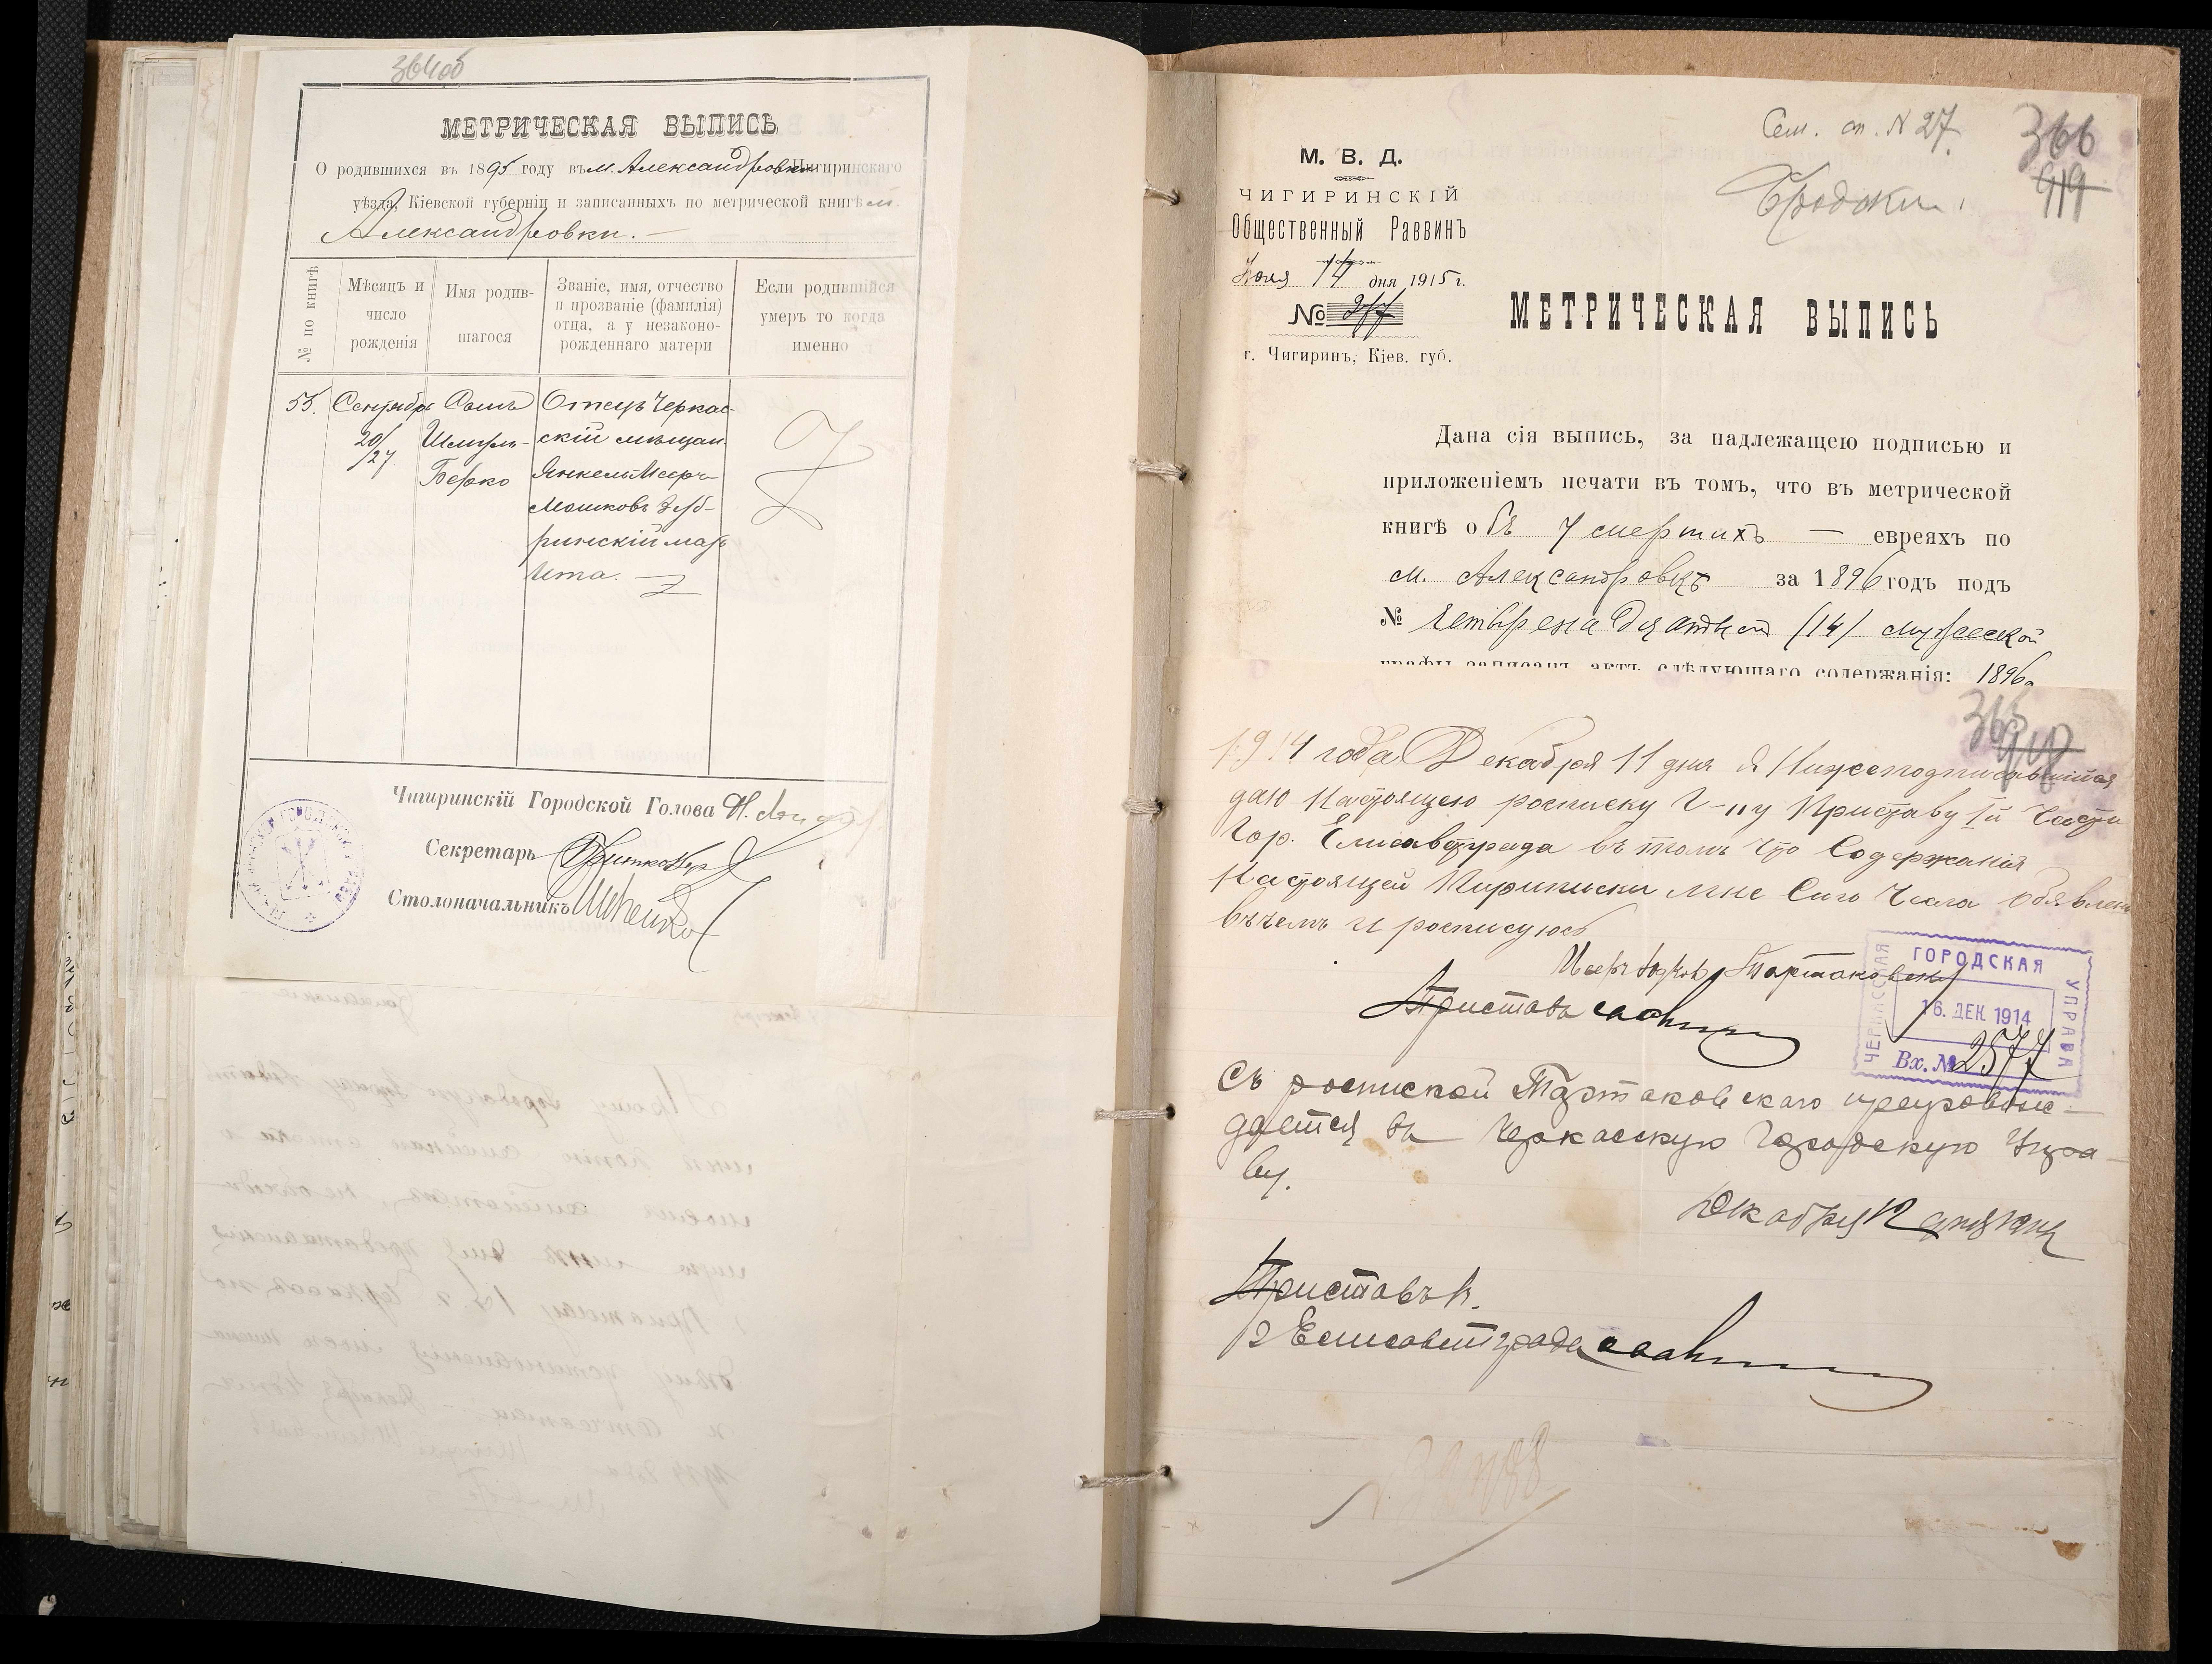 364об
МЕТРИЧЕСКАЯ ВЫПИСЬ
О родившихся въ 1895 году въ м. Александровкѣ Чигиринскаго
уѣзда, Кіевской губерніи и записанныхъ по метрической книгѣ м.
Александровки. —
№ по книгѣ
Мѣсяцъ и число рожденія
Имя родив- шагося
Званіе, имя, отчество и прозваніе (фамилія) отца, а у незаконо- рожденнаго матери
Если родившійся умеръ то когда именно
55. Сентября Сынъ Отецъ Черкас-
20/27 Шмуль- скій мѣщан.
Берко Янкель Меер-
Мошковъ Зуб-
ринскій мать
Ита. —
Чигиринскій Городской Голова Н.
Секретарь
Столоначальникъ
Сем. сп. N 27.
366
919
Бродски
М. В. Д.
ЧИГИРИНСКІЙ
Общественный Раввинъ
Іюля 14 дня 1915 г.
№ 277
г. Чигиринъ, Кіев. губ.
МЕТРИЧЕСКАЯ ВЫПИСЬ
Дана сія выпись, за надлежащею подписью и
приложеніемъ печати въ томъ, что въ метрической
книгѣ объ умершихъ — евреяхъ по
м. Александровкѣ за 1896 годъ подъ
№ четырнадцатым (14) мужеской
графы записанъ актъ слѣдующаго содержанія: 1896
365
918
1914 года Декабря 11 дня я Нижеподписавшійся
даю Настоящею росписку Г-ну Приставу 1й Части
Гор. Елисавтграда въ томъ что Содержанія
Настоящей Пириписки мне Сиго Числа обявлено
въ чемъ и росписуюсь
Меер Тартаковскій
Приставъ
ЧЕРКАССКАЯ ГОРОДСКАЯ УПРАВА
16. ДЕК 1914
Вх. № 2577
Съ роспиской Тартаковскаго препровож-
дается въ Черкасскую Городскую Упра-
ву.
Декабря 12 дня 1914
Приставъ
г Елисаветграда